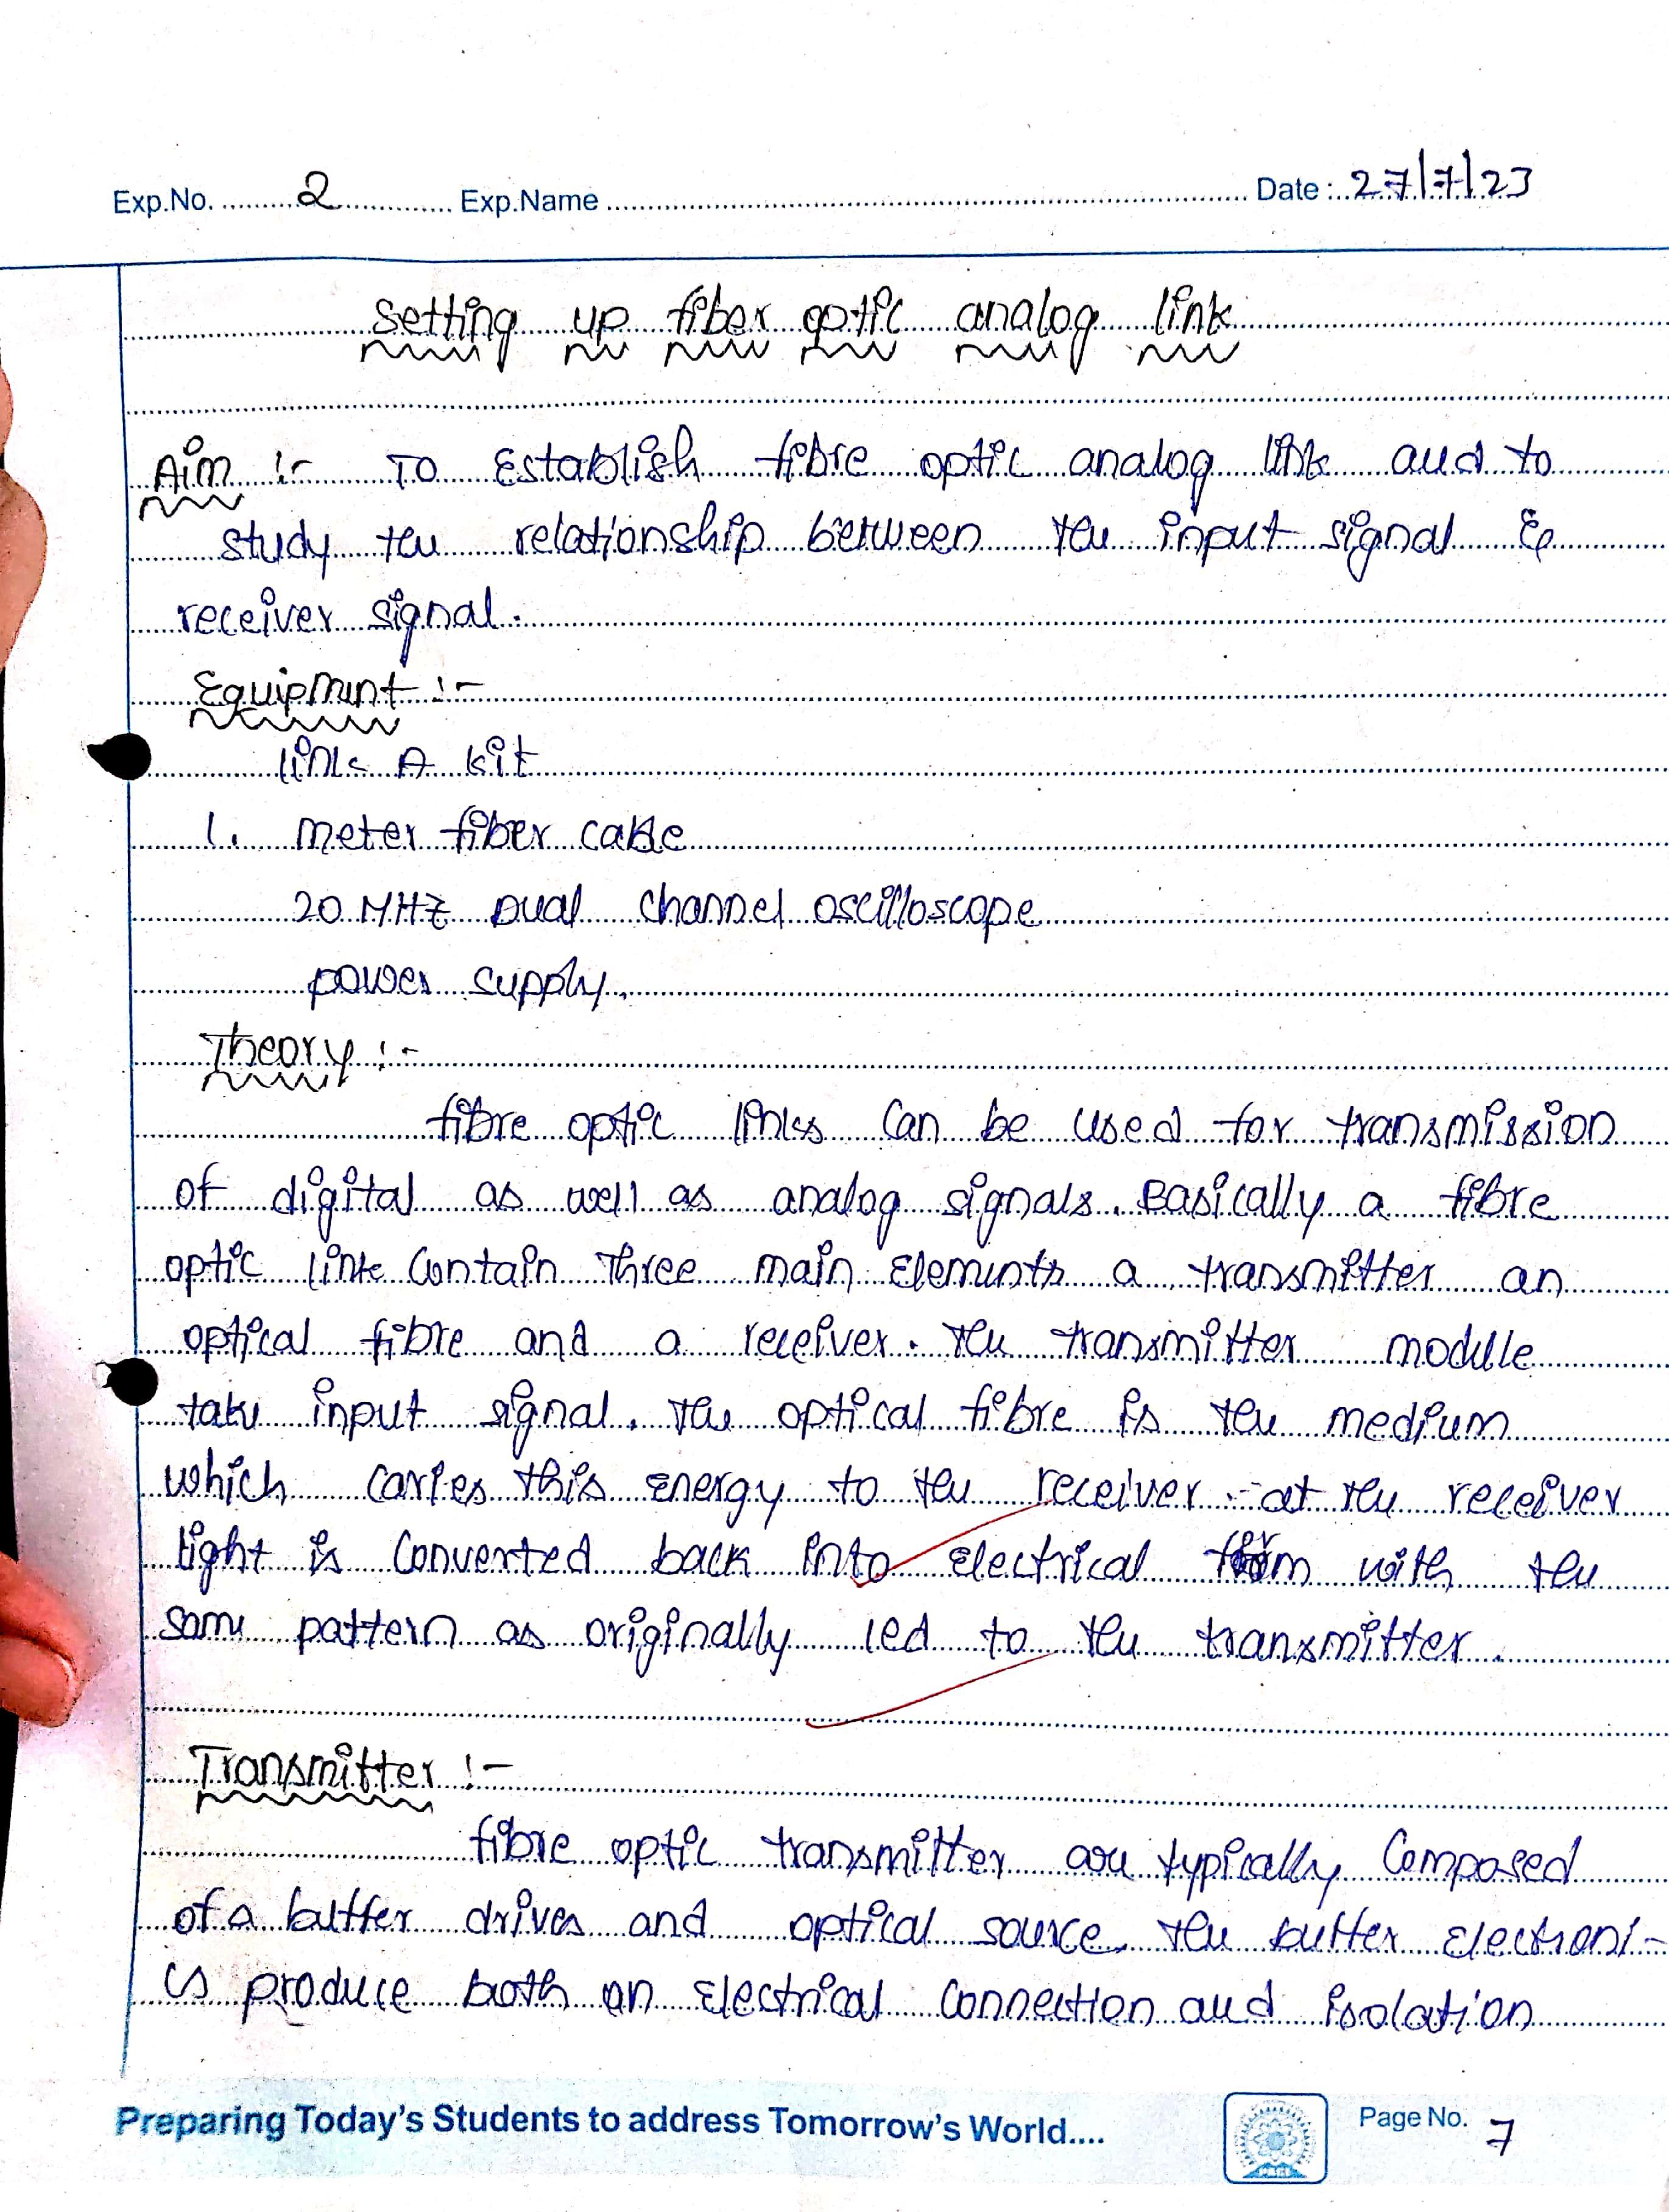 Exp.No. 2 Exp.Name Date : 27/7/23
Setting up fiber optic analog link
Aim :- To Establish fibre optic analog link and to
study the relationship between the input signal &
receiver signal.
Equipment :-
link A kit
1. meter fiber cable
20 MHZ Dual channel oscilloscope
power supply.
Theory :-
fibre optic links can be used for transmission
of digital as well as analog signals. Basically a fibre
optic link contain three main elements a transmitter an
optical fibre and a receiver. The transmitter module
take input signal. The optical fibre is the medium
which caries this energy to the receiver. at the receiver
light is converted back into electrical form with the
same pattern as originally led to the transmitter.
Transmitter :-
fibre optic transmitter are typically composed
of a buffer drives and optical source. The buffer electroni-
cs produce both an electrical connection and isolation
Preparing Today's Students to address Tomorrow's World....
Page No. 7